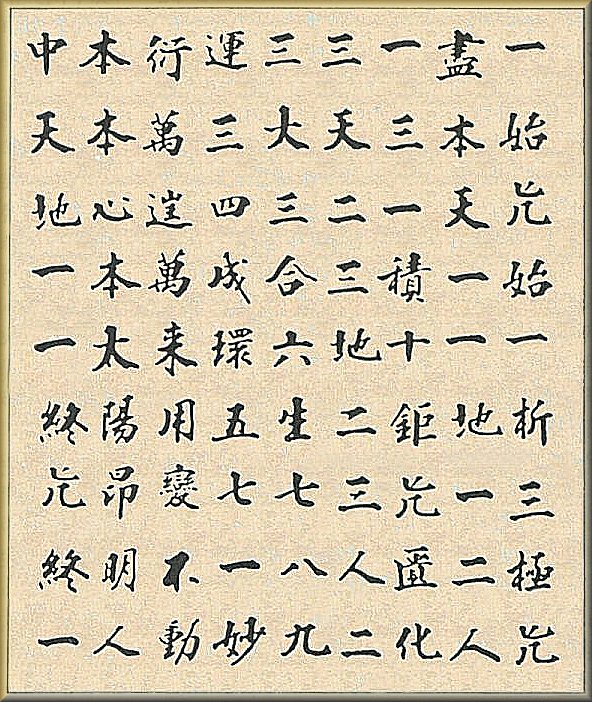 一始无始一析三極无
盡本天一一地一二人
一三一積十鉅无匱化
三天二三地二三人二
三大三合六生七八九
運三四成環五七一妙
衍萬𨓹萬来用變不動
本本心本太陽昂明人
中天地一一終无終一